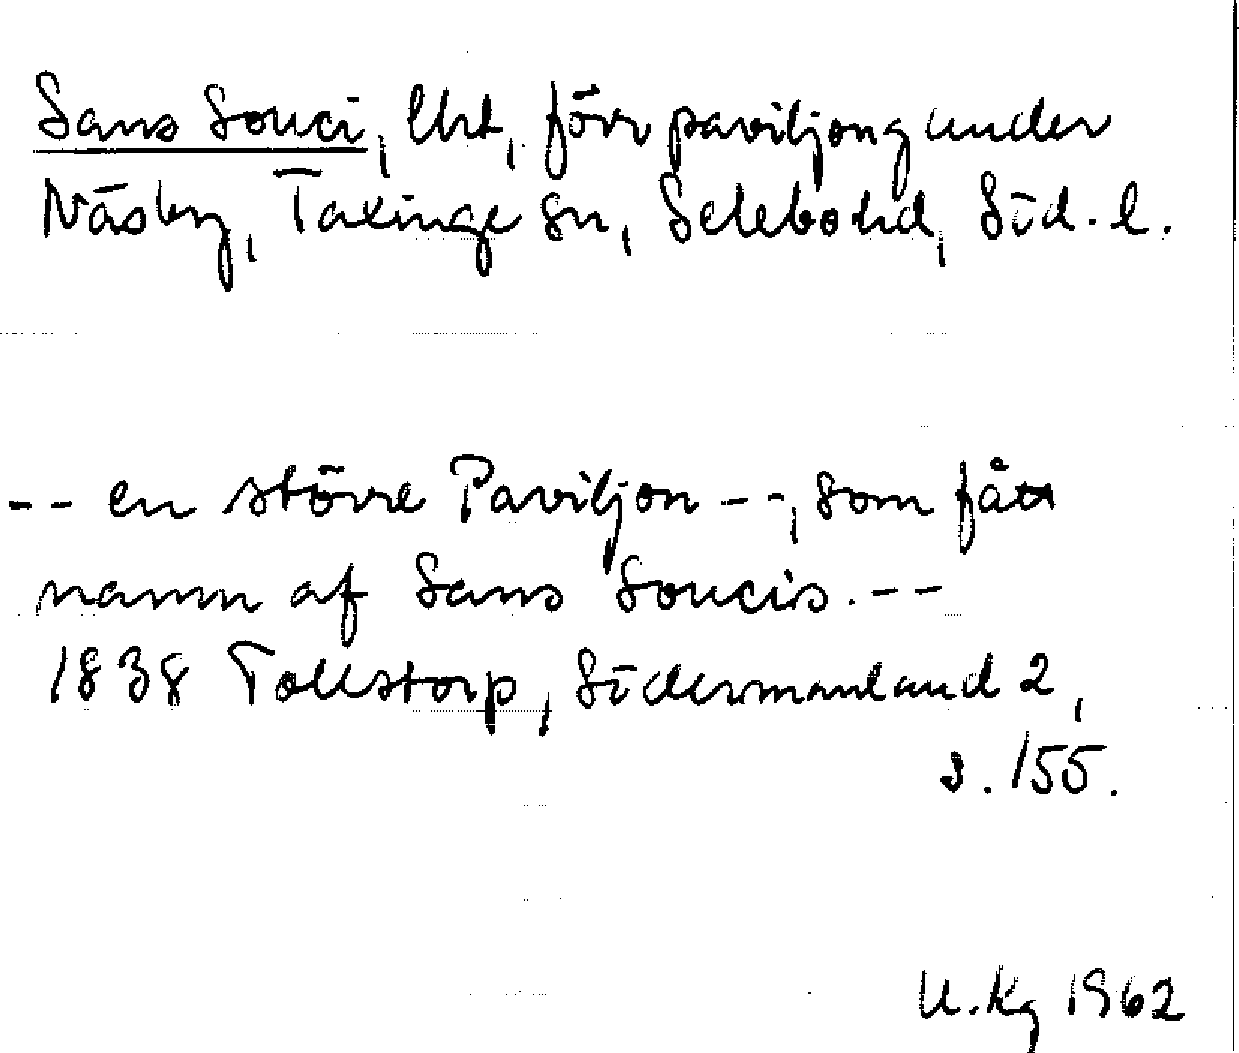 Sans Souci, Uht, förr paviljong under
Näsby, Taxinge sn, Selebo hd, Söd. l.
-- en större Paviljon --, som fått
namn af Sans Soucis. --
1838 Tollstorp, Södermanland 2,
s. 155.
U. Kg 1962